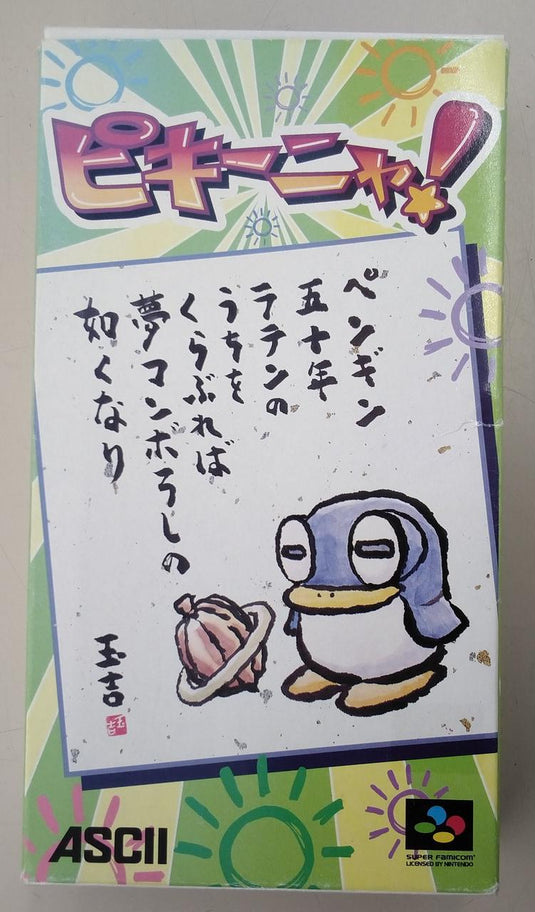 ピキーニャ!
ペンギン
五十年
ラテンの
うちを
くらぶれば
夢マンボうしの
如くなり
玉吉
ASCII
SUPER FAMICOM
LICENSED BY NINTENDO